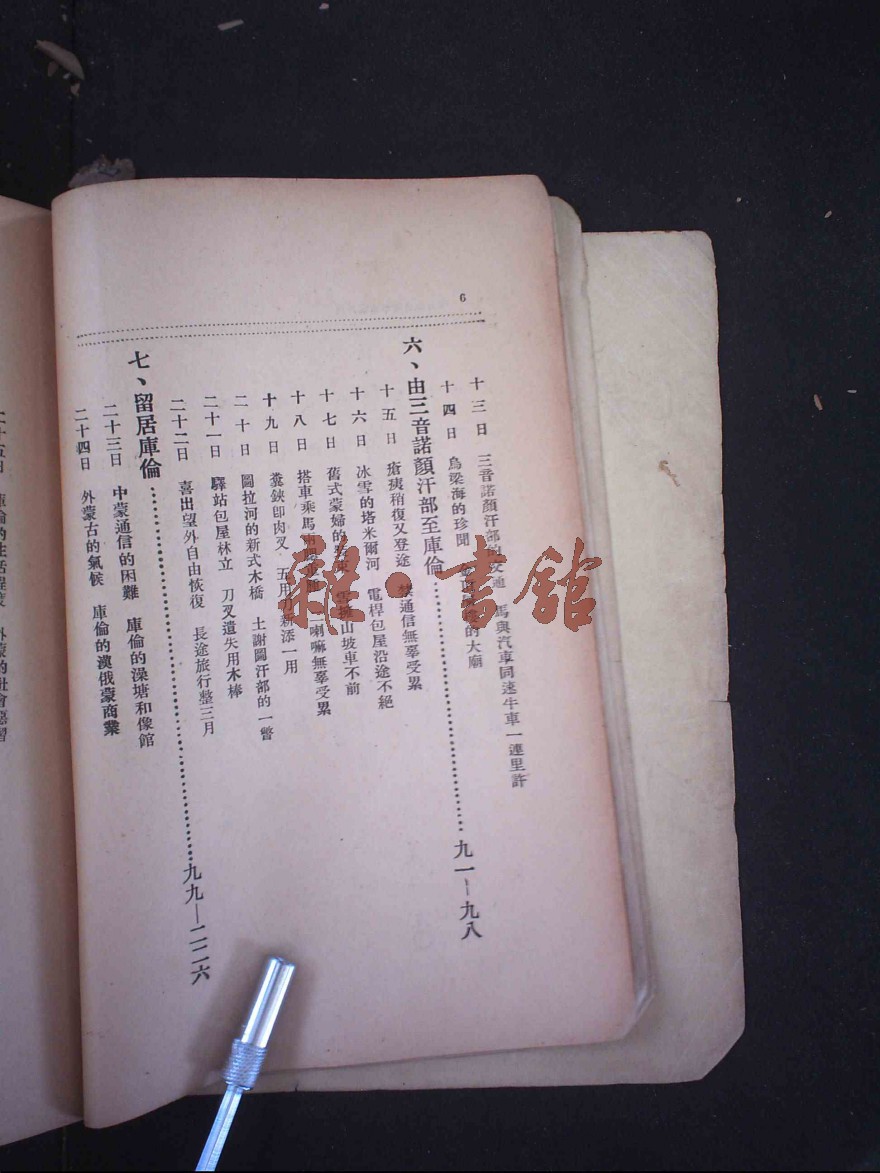 6
十三日　三音諾顏汗部的　馬與汽車同速牛車一連里許
十四日　烏梁海的珍聞　的大廟
六、由三音諾顏汗部至庫倫……九一—九八
十五日　瘡痍稍復又登途　禁通信無辜受累
十六日　冰雪的塔米爾河　電桿包屋沿途不絕
十七日　舊式蒙婦的　山坡車不前
十八日　搭車乘馬兩　喇嘛無辜受累
十九日　糞鋏即肉叉　五用刀新添一用
二十日　圖拉河的新式木橋　土謝圖汗部的一瞥
二十一日　驛站包屋林立　刀叉遺失用木棒
二十二日　喜出望外自由恢復　長途旅行整三月
七、留居庫倫……九九—二二六
二十三日　中蒙通信的困難　庫倫的澡塘和像館
二十四日　外蒙古的氣候　庫倫的漢俄蒙商業
二十五日　庫倫的生活程度　外蒙的社會惡習
雜·書館